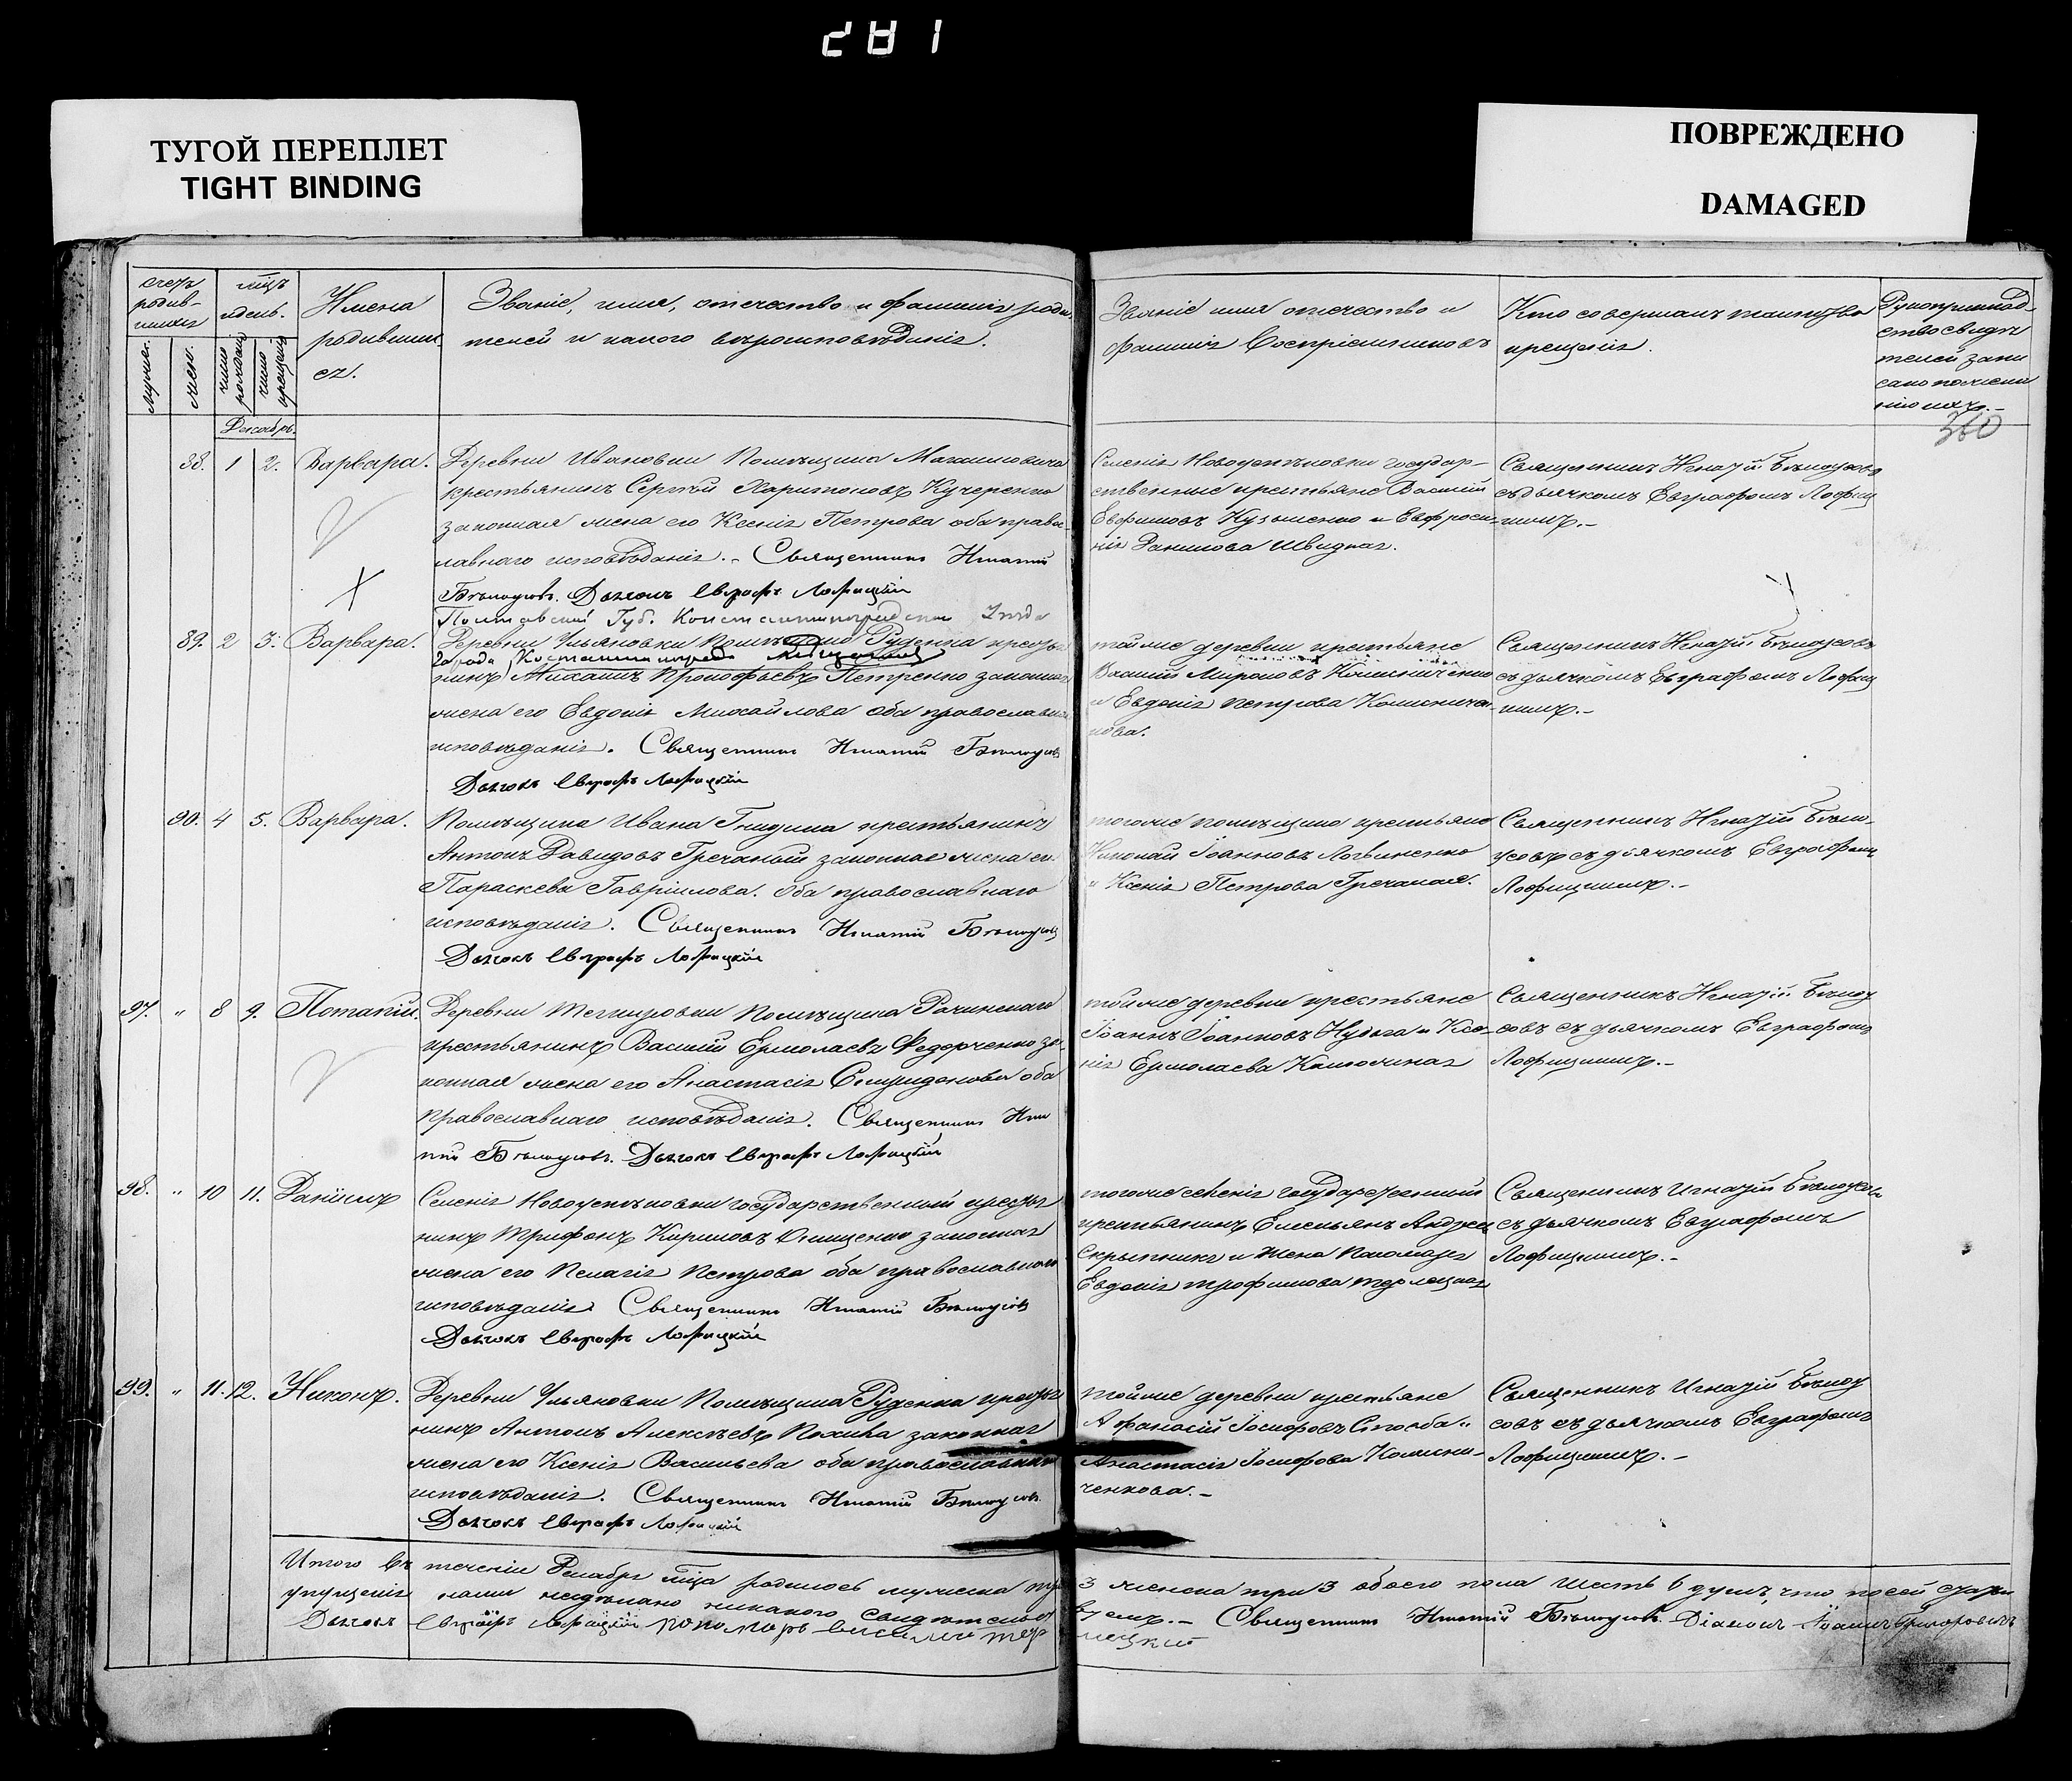 281
ТУГОЙ ПЕРЕПЛЕТ
TIGHT BINDING
ПОВРЕЖДЕНО
DAMAGED
счетъ родив-шихся
мцъ и день.
Имена родивших ся.
Званіе, имя, отчество и фамилія роди,
телей и какого вѣроисповѣданія.
мужес. женс. число рожденія число крещенія
Званіе имя отчество и
фамилія Воспріемниковъ
Кто совершалъ таинство
крещенія.
Рукоприклад-
ство свидѣ
телей запи
сано по желанію
Декабрь.
360
88. 1 2. Варвара. Деревни Ивановки Помѣщика Максимовича
крестьянинъ Сергѣй Харитоновъ Кучеренко
законная жена его Ксенія Петрова оба правос-
лавнаго исповѣданія. - Священникъ Игнатій
Бѣлоусовъ. Дьячокъ Евграфъ Лофицкій
Селенія государ-
ственные крестьяне Василій
Евфимовъ Кузьменко и Евфроси-
нія Данилова Швидкая.
Священникъ Игнатій Бѣлоусовъ
съ дьячкомъ Евграфомъ Лофиц
кимъ.-
Полтавской Губ. Константиноградскаго Уѣзда
89. 2 3. Варвара. Деревни Ульяновки Помѣщика Руденка крестья
Города Константинограда
нинъ Михаилъ Прокофьевъ Петренко законная
жена его Евдокія Михайлова оба православнаго
исповѣданія. Священникъ Игнатій Бѣлоусовъ
Дьячокъ Евграфъ Лофицкій
тойже деревни крестьяне
Василій Мироновъ Колисниченко
и Евдокія Петрова Колисничен-
кова.
Священникъ Игнатій Бѣлоусовъ
съ дьячкомъ Евграфомъ Лофиц
кимъ.-
90. 4 5. Варвара. Помѣщика Ивана крестьянинъ
Антонъ Давидовъ Гречаный законная жена его
Параскева Гавріилова. оба православнаго
исповѣданія. Священникъ Игнатій Бѣлоусовъ
Дьячокъ Евграфъ Лофицкій
тогоже помѣщика крестьяне
Николай Іоанновъ Логвиненко
и Ксенія Петрова Гречаная.
Священникъ Игнатій Бѣло-
усовъ съ дьячкомъ Евграфомъ
Лофицкимъ.-
97. " 8 9. Потапій. Деревни Помѣщика Рачинскаго
крестьянинъ Василій Ермолаевъ Федорченко за-
конная жена его Анастасія Спиридонова оба
православнаго исповѣданія. Священникъ Игна
тій Бѣлоусовъ. Дьячокъ Евграфъ Лофицкій
тойже деревни крестьяне
Іоаннъ Іоанновъ Нудьга и Ксе-
нія Ермолаева
Священникъ Игнатій Бѣлоу
совъ съ дьячкомъ Евграфомъ
Лофицкимъ.-
98. " 10 11. Даніилъ Селенія государственный крестья
нинъ Трифонъ Кириловъ Онищенко законная
жена его Пелагія Петрова оба православнаго
исповѣданія Священникъ Игнатій Бѣлоусовъ
Дьячокъ Евграфъ Лофицкій
тогоже селенія государственный
крестьянинъ Емельянъ Андреевъ
Скрыпникъ и жена Пономаря
Евдокія Трофимова Терлецкая
Священникъ Игнатій Бѣлоусовъ
съ дьячкомъ Евграфомъ
Лофицкимъ.-
99. " 11. 12. Никонъ. Деревни Ульяновки Помѣщика Руденка крестья
нинъ Антонъ Алексѣевъ законная
жена его Ксенія Васильева оба православнаго
исповѣданія. Священникъ Игнатій Бѣлоусовъ.
Дьячокъ Евграфъ Лофицкій
тойже деревни крестьяне
Афанасій Іосифовъ и
Анастасія Іосифова Колисни-
ченкова.-
Священникъ Игнатій Бѣлоу
совъ съ дьячкомъ Евграфомъ
Лофицкимъ.-
Итого въ теченіи Декабря мца родилось мужеска три 3 женска три 3 обоего пола шесть 6 душъ, что по сей статьи
упущенія нами недѣлано никакого свидѣтельст вуемъ.- Священникъ Игнатій Бѣлоусовъ. Діаконъ Іоаннъ Григоровичъ
Дьячокъ Евграфъ Лофицкій пономарь Василій Тер лецкій